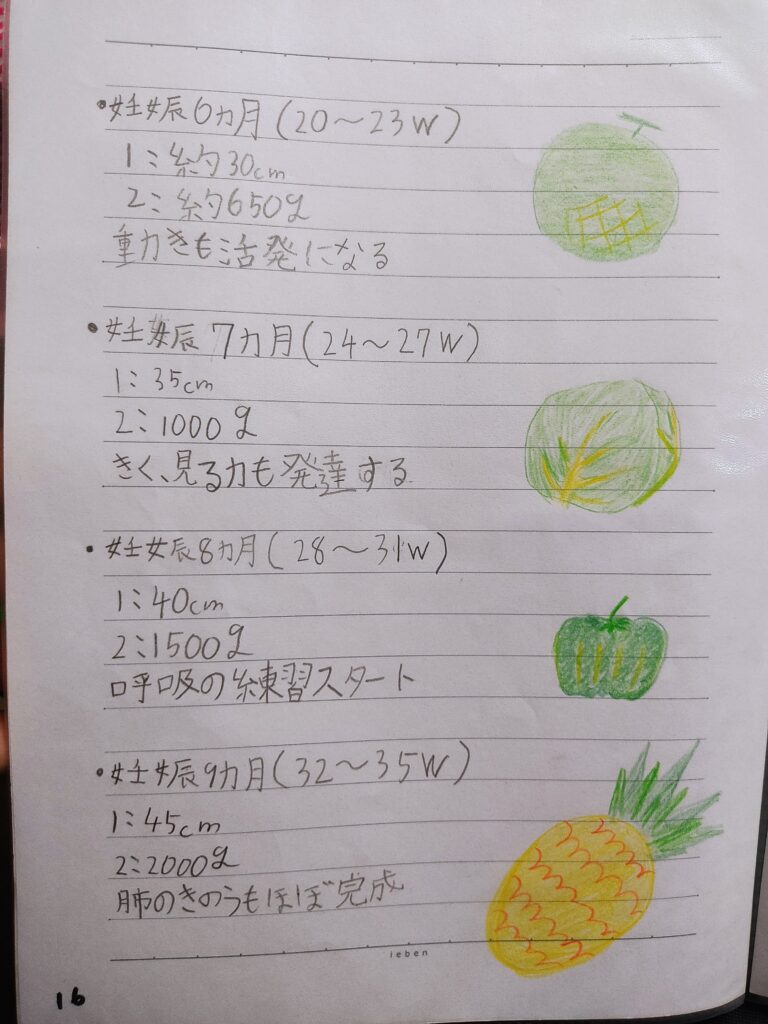 ・妊娠6ヵ月(20〜23W)
1:約30cm
2:約650g
動きも活発になる
・妊娠7カ月(24〜27W)
1:35cm
2:1000g
きく、見る力も発達する
・妊娠8カ月(28〜31W)
1:40cm
2:1500g
呼吸の練習スタート
・妊娠9カ月(32〜35W)
1:45cm
2:2000g
肺のきのうもほぼ完成
ieben
16